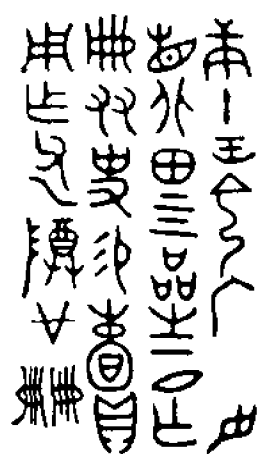 庚午王令寢農
省北田四品才二月乍
册友史易貝
用乍父乙尊羊册